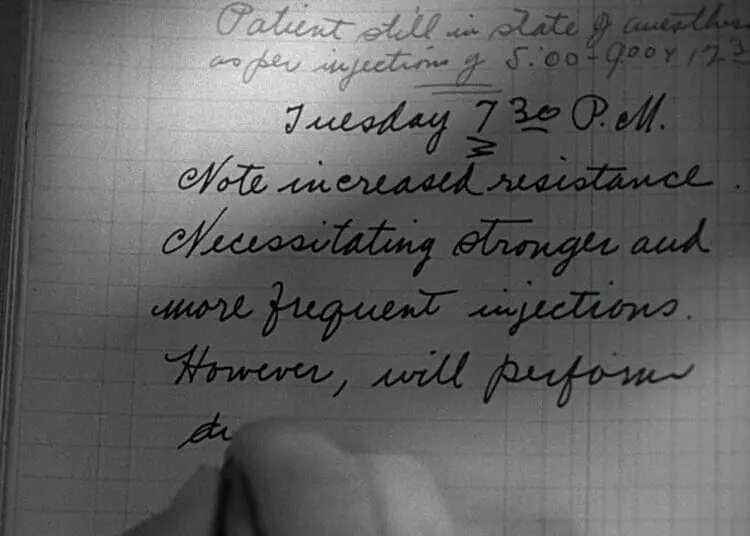 Patient still in state of
as per injections of 5:00 - 9:00 & 12
Tuesday 7 30 P.M.
Note increased resistance.
Necessitating stronger and
more frequent injections.
However, will perform